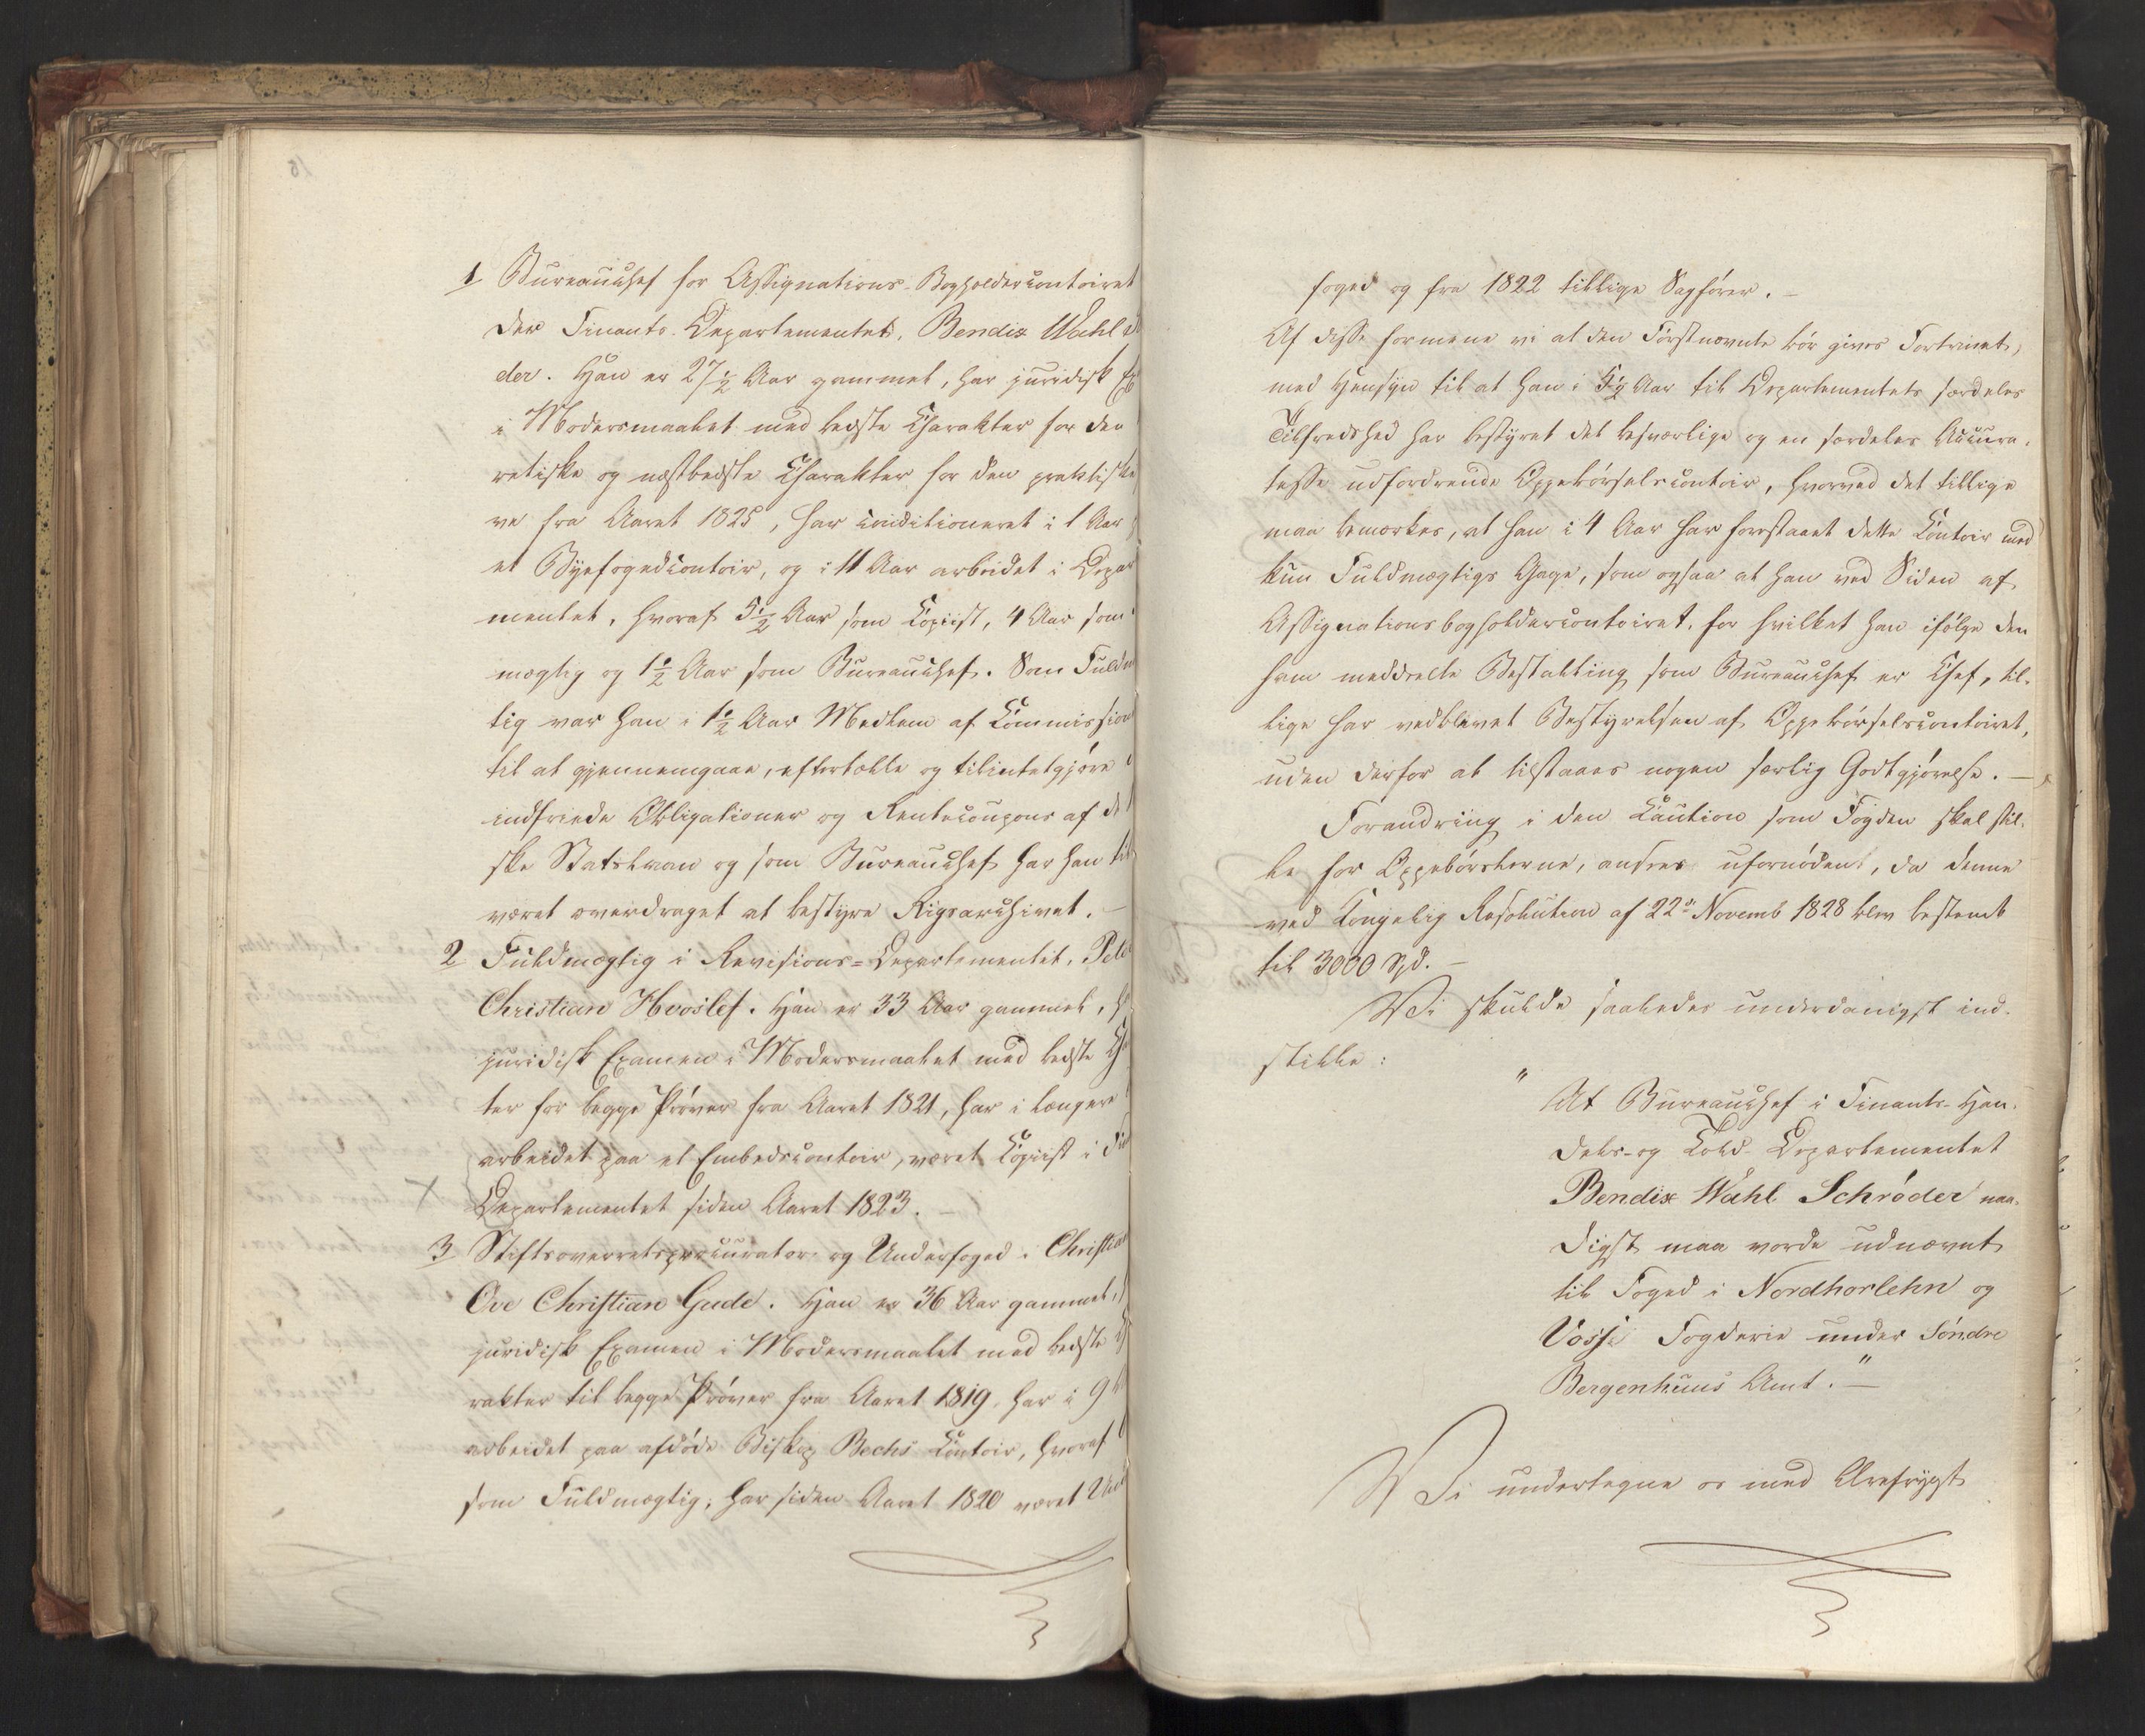 1 Bureauchef for Assignations-Bogholdercontoiret
der Finants-Departementet, Bendix Wahl
der. Han er 27½ Aar gammel, har juridisk
i Modersmaalet med bedste Charakter for den
retiske og næstbedste Charakter for den praktiske
ve fra Aaret 1825, har conditioneret i 1 Aar
et Byefogedcontoir, og i 11 Aar arbeidet i Depar
mentet, hvoraf 5½ Aar som Copiist, 4 Aar som
mægtig og 1½ Aar som Bureauchef. Som Fuldm
tig var han i 1½ Aar Medlem af Commission
til at gjennemgaae, eftertælle og tilintetgjøre
indfriede Obligationer og Rentecoupons af
ske Statslaan og som Bureauchef har han til
været overdraget at bestyre Rigsarchivet. —
2 Fuldmægtig i Revisions-Departementet, Pete
Christian Hvoslef. Han er 33 Aar gammel,
juridisk Examen i Modersmaalet med bedste
ter for begge Prøver fra Aaret 1821, har i længere
arbeidet paa et Embedscontoir, været Copiist i
Departementet siden Aaret 1823. —
3 Stiftsoverretsprocurator og Underfoged i Christia
Ove Christian Gude. Han er 36 Aar gammel,
juridisk Examen i Modersmaalet med bedste
rakter til begge Prøver fra Aaret 1819, har i 9
arbeidet paa afdøde Biskop Bechs Contoir, hvoraf
som Fuldmægtig, har siden Aaret 1820 været Und
foged og fra 1822 tillige Sagfører. —
Af disse formene vi at den Førstnævnte bør gives Fortrinet,
med Hensyn til at han i 5½ Aar til Departementets særdeles
Tilfredshed har bestyret det besværlige og en særdeles Accura-
tesse udfordrende Oppebørselscontoir, hvorved det tillige
maa bemærkes, at han i 4 Aar har forestaaet dette Contoir med
kun Fuldmægtigs Gage, som ogsaa at han ved Siden af
Assignationsbogholdercontoiret, for hvilket han ifølge den
ham meddeelte Bestalling som Bureauchef er Chef, til-
lige har vedblevet Bestyrelsen af Oppebørselscontoiret,
uden derfor at tilstaaes nogen særlig Godtgjørelse. —
Forandring i den Caution som Fogden skal stil-
le for Oppebørslerne, ansees ufornøden, da denne
ved Kongelig Resolution af 22de Novemb 1828 blev bestemt
til 3000 Spd. —
Vi skulde saaledes underdanigst ind-
stille:
"At Bureauchef i Finants- Han-
dels- og Told-Departementet
Bendix Wahl Schrøder naa-
digst maa vorde udnævnt
til Foged i Nordhorlehn og
Vosse Fogderie under Søndre
Bergenhuus Amt." —
Vi undertegne os med Ærefrygt